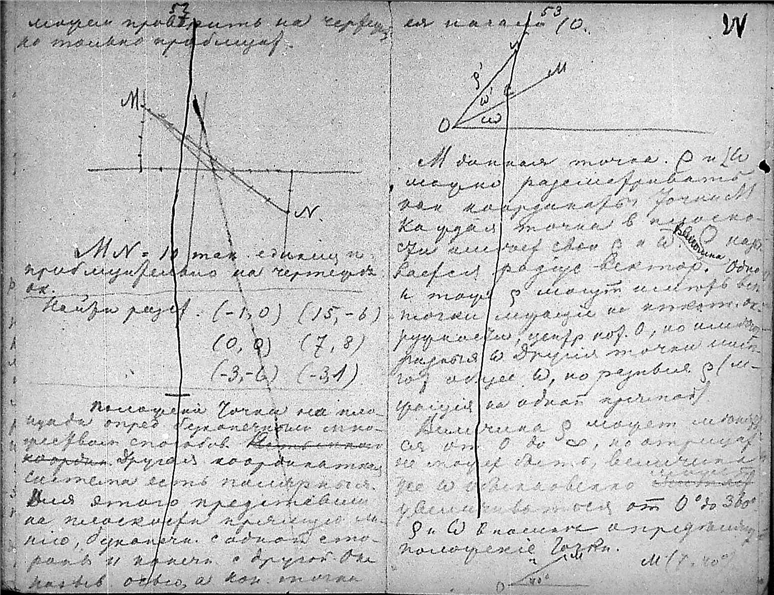 52
можем проверить на чертеже
но только приблизит.
M
N
MN = 10 так. единиц
приблизительно на чертеже
ок.
Найти разст. (-1, 0) (15, -6)
(0, 0) (7, 8)
(-3, -6) (-3, 1)
Положение точки на пло-
щади опред. безконечным мно-
жеством способов.
координ. Другая координатная
система есть полярная.
Для этого представим
на плоскости прямую ли-
нию, безконечн. с одной сто-
роны и конечн. с другой. Она
назыв. осью, а кон. точка
53
ея начало О.
IV
M
ρ'
ω'
ρ
ω
O
M данная точка. ρ и ∠ω
можно разсматривать
как координаты точки M
Каждая точка в плоско-
сти имеет свои ρ и ω. Величина ρ назы-
вается радиус вектор. Одно
и тоже ρ могут иметь все
точки лежащие на окр.
ружности, центр кот. О, но имеют
разныя ω. Другия точки имеют
общее ω, но разныя ρ (ле-
жащия на одной прямой)
Величина ρ может меняет
ся от 0 до ∞, но отрицат.
не может быть, величина
же ω
увеличиваться от 0° до 360°
ρ и ω вполне определяют
положение точки.
M
O
40°
M (7, 40°)